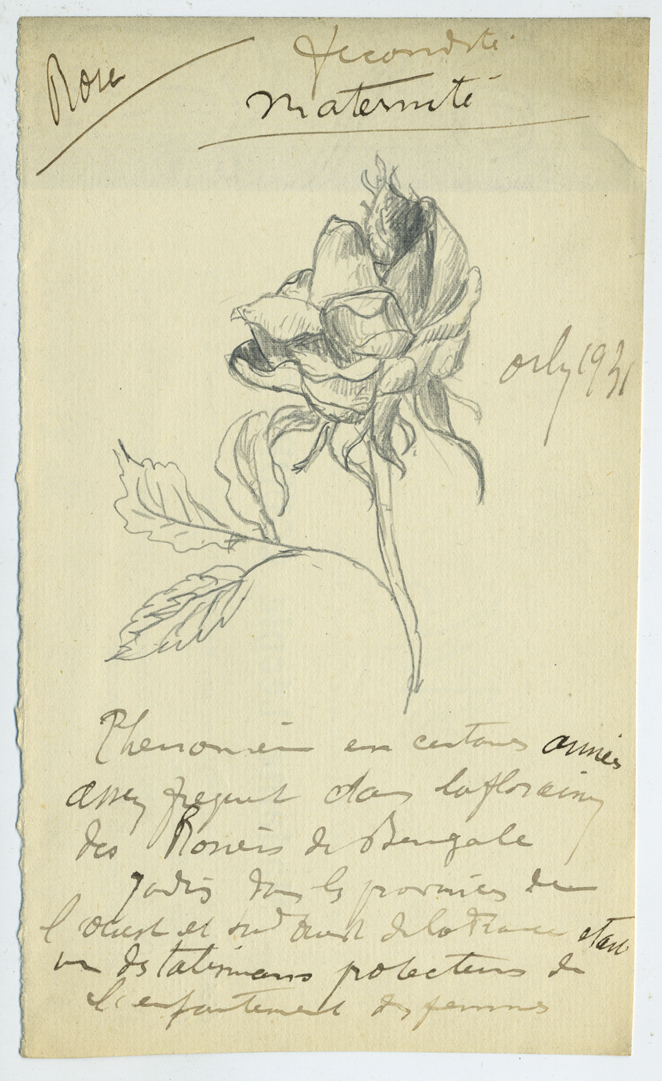 Rose
fecondité
maternité
orly 1931
Phenomein en certaines annees
assez frequent dans la floraison
des Rosiers de Bengale
Jadis dans les provinces de
l ouest et sud ouest de la France etait
un des talismans protecteurs de
l'enfantement des femmes